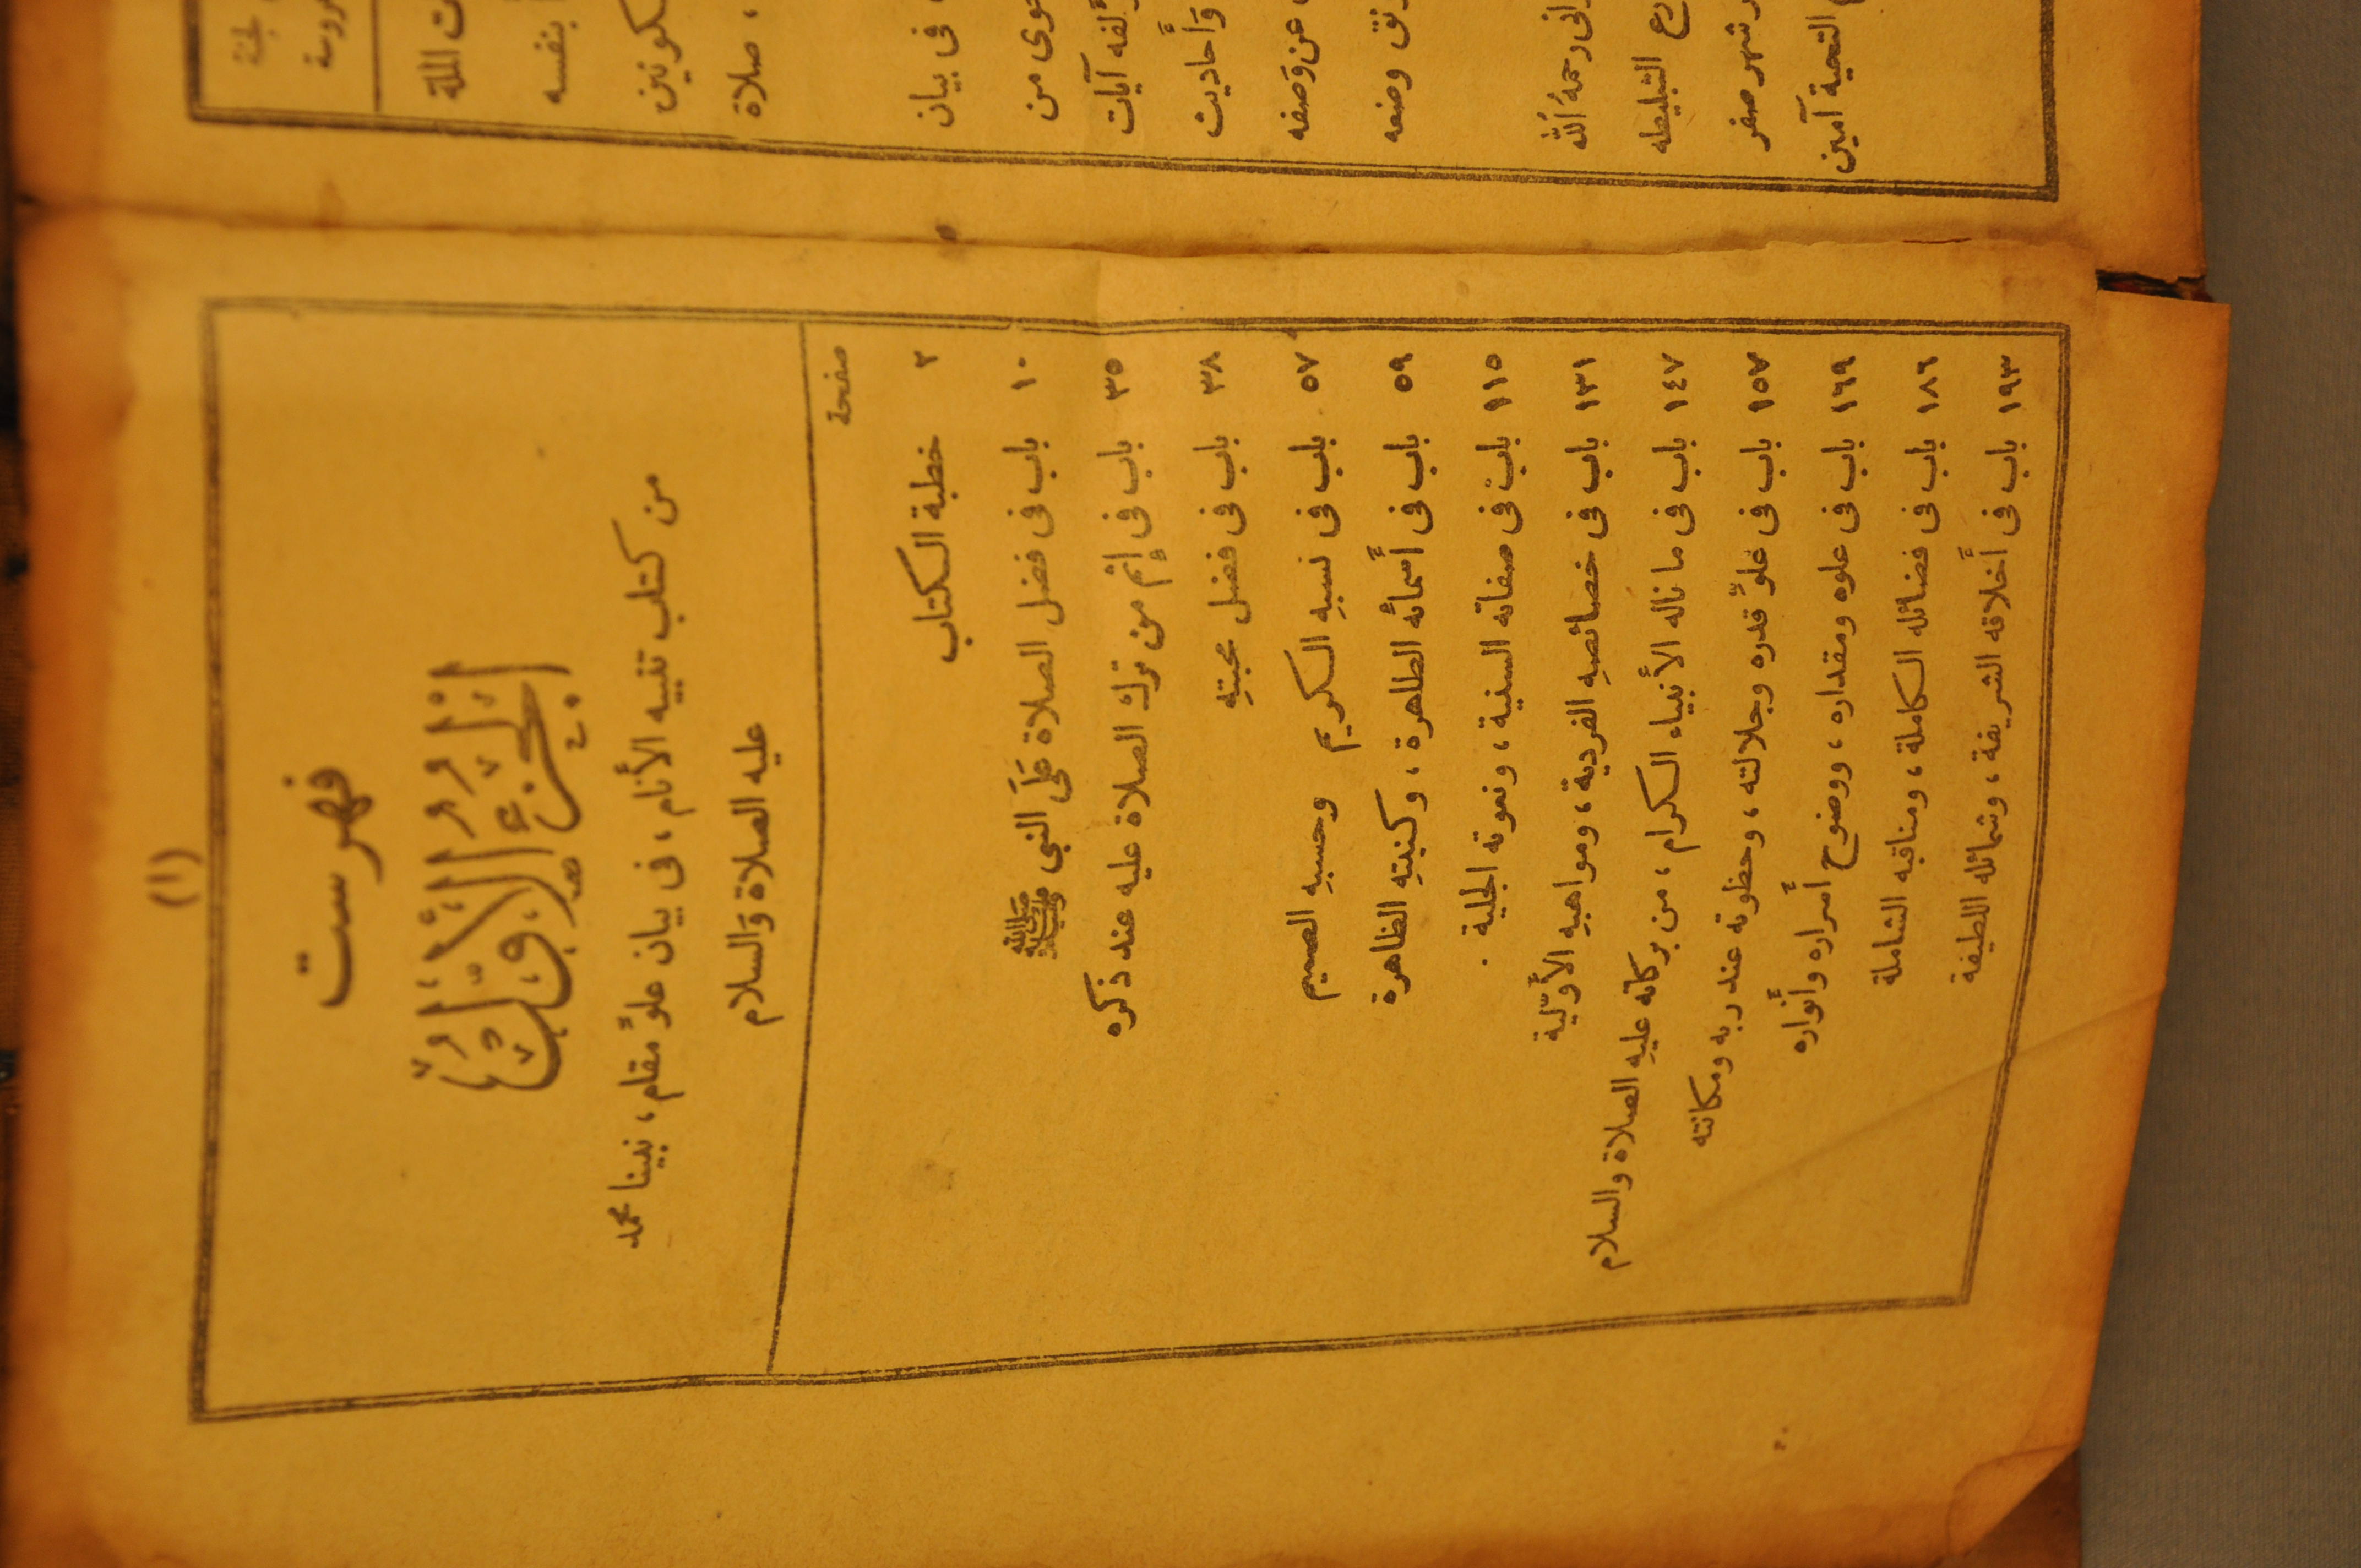 (١)
فهرست
الجزء الأول
من كتاب تنبيه الأنام، فى بيان علوّ مقام، نبينا محمد
عليه الصلاة وَالسلام
صفحة
٢ خطبة الكتاب
١٠ باب فى فضل الصلاة عَلَى النبى ﷺ
٣٥ باب فى إثم من ترك الصلاة عليه عند ذكره
٣٨ باب فى فضل محبتِه
٥٧ باب فى نسبِهِ الكريم وحسبِهِ الصميم
٥٩ باب فى أَسمائه الطاهرة، وكنيتِهِ الظاهرة
١١٥ باب فى صفاته السنية، ونعوته الجلية .
١٣١ باب فى خصائصِهِ الفردية، ومواهبِهِ الأَوّلية
١٤٧ باب فى ما ناله الأنبياء الكرام، من بركاته عليهِ الصلاة والسلام
١٥٧ باب فى علوّ قدره وجلالته، وحظوته عند ربه ومكانته
١٦٩ باب فى علوه ومقداره، ووضوح أَسراره وأَنواره
١٨٦ باب فى فضائله الكاملة، ومناقبه الشاملة
١٩٣ باب فى أَخلاقه الشريفة، وشمائله اللطيفة
ت الملة
بنفسه
كونين
، صلاة
، فى بيان
وى من
لفه آيات
وَأَحاديث
عن وَصفه
وضعه
انى رحمهُ الله
شهر صفر
التحية آمين